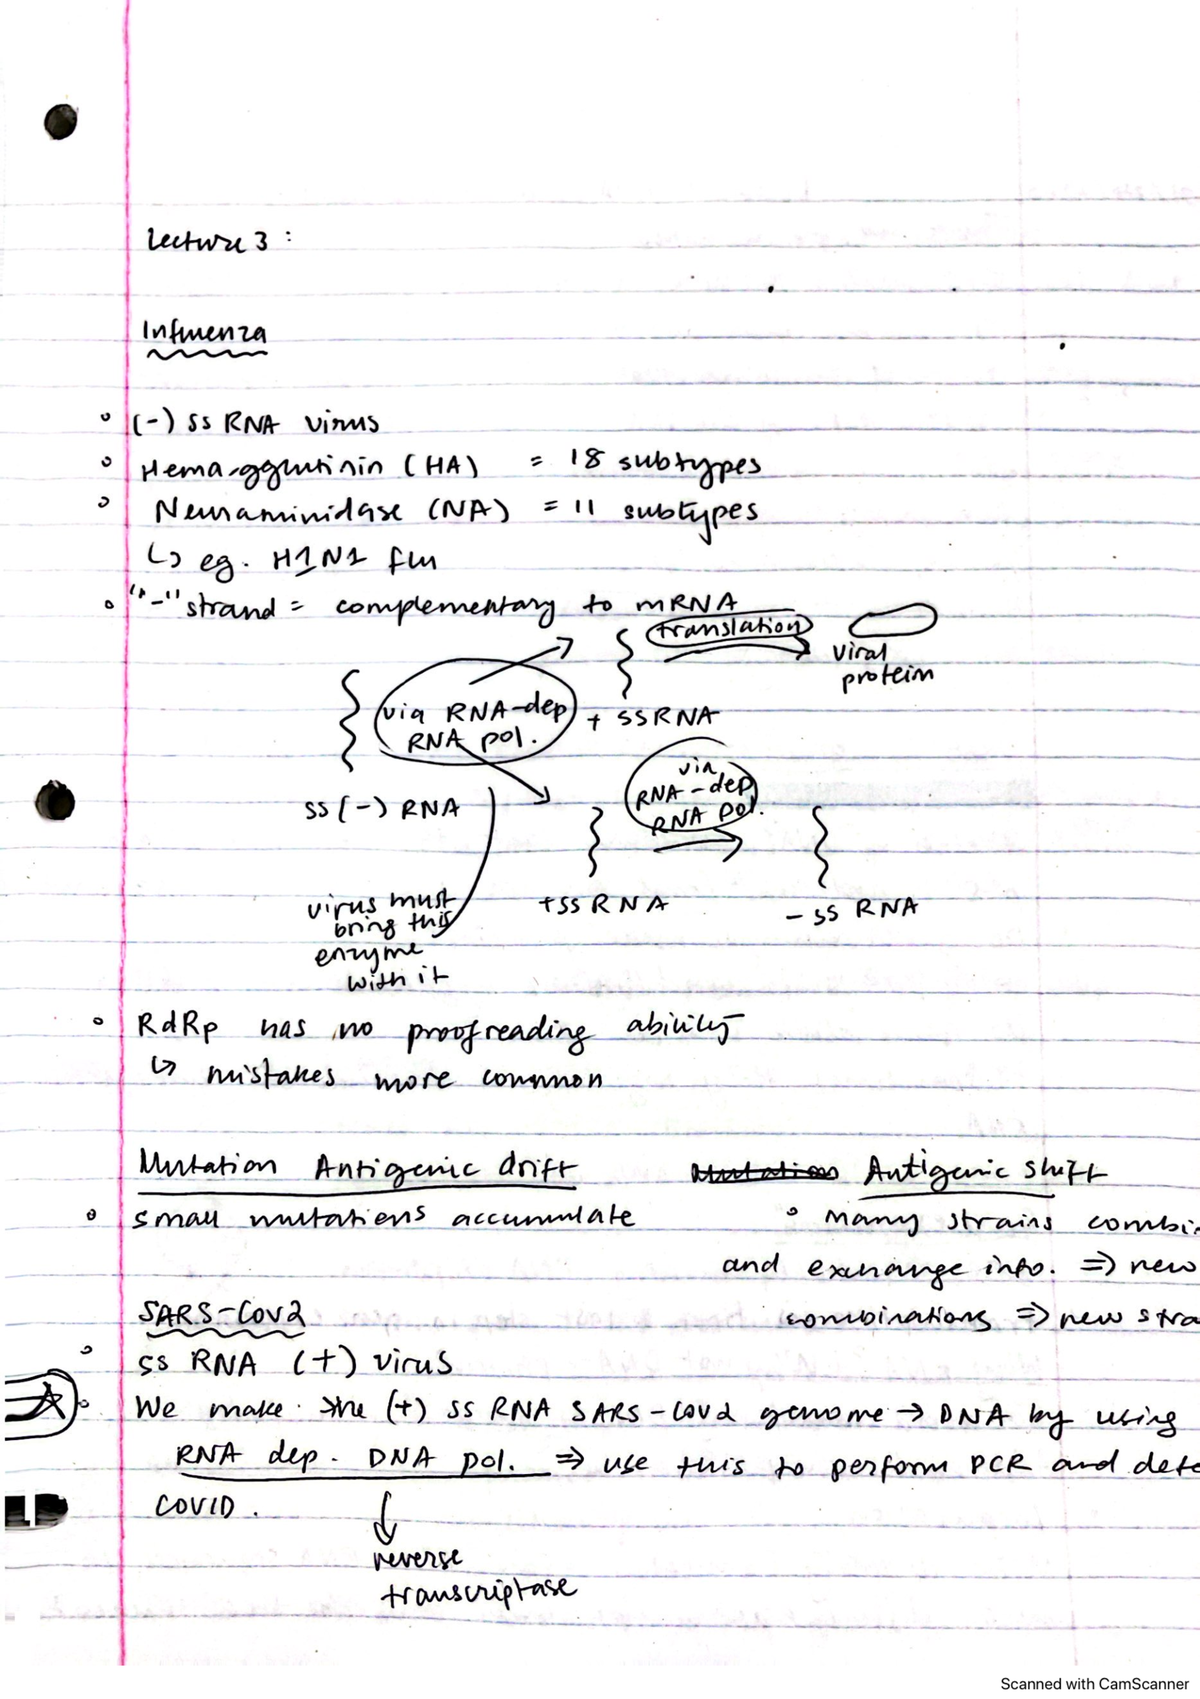 Lecture 3 :
Influenza
(-) ss RNA virus
Hemagglutinin (HA) = 18 subtypes
Neuraminidase (NA) = 11 subtypes
↳ eg. H1N1 flu
"-" strand = complementary to mRNA
translation
viral
protein
via RNA-dep
RNA pol.
+ ssRNA
ss (-) RNA
via
RNA-dep
RNA pol.
+ss RNA
- ss RNA
virus must
bring this
enzyme
with it
RdRp has no proofreading ability
↳ mistakes more common
Mutation Antigenic drift
Mutation Antigenic shift
small mutations accumulate
many strains combi
and exchange info. ⇒ new
combinations ⇒ new stra
SARS-Cov2
ss RNA (+) virus
We make the (+) ss RNA SARS-Cov2 genome → DNA by using
RNA dep. DNA pol. ⇒ use this to perform PCR and dete
COVID.
reverse
transcriptase
Scanned with CamScanner